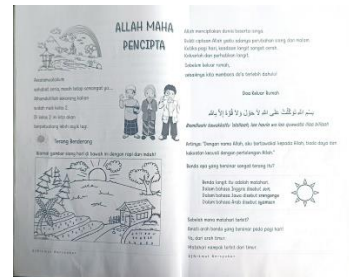 ALLAH MAHA
PENCIPTA
Assalamualaikum
sahabat ceria, masih tetap semangat ya...
Alhamdulillah sekarang kalian
sudah naik kelas 2.
Di kelas 2 ini kita akan
Terang Benderang
Warnai gambar siang hari di bawah ini dengan rapi dan indah!
Allah menciptakan dunia beserta isinya.
Bukti ciptaan Allah yaitu adanya perubahan siang dan malam.
Ketika pagi hari, keadaan langit sangat cerah.
Keluarlah dan perhatikan langit.
Sebelum keluar rumah,
sebaiknya kita membaca do'a terlebih dahulu!
Doa Keluar Rumah
بِسْمِ اللهِ تَوَكَّلْتُ عَلَى اللهِ لَا حَوْلَ وَلَا قُوَّةَ إِلَّا بِاللهِ
Bismillaahi tawakkaltu 'alallaah, laa haula wa laa quwwata illaa billaah
Artinya: "Dengan nama Allah, aku bertawakal kepada Allah, tiada daya dan
kekuatan kecuali dengan pertolongan Allah."
Benda apa yang bersinar sangat terang itu?
Benda langit itu adalah matahari.
Dalam bahasa Inggris disebut sun.
Dalam bahasa Jawa disebut srengenge.
Dalam bahasa Arab disebut syamsun.
Sebelah mana matahari terbit?
Amati arah benda yang bersinar pada pagi hari!
Ya, dari arah timur.
Matahari nampak terbit dari timur.